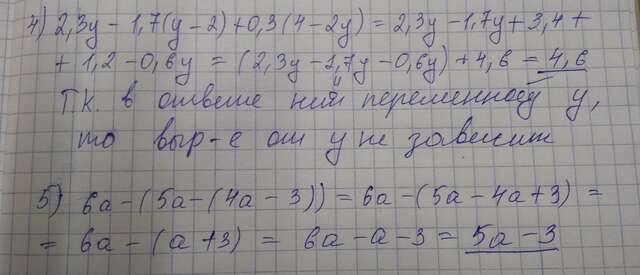 4) 2,3y - 1,7(y - 2) + 0,3(4 - 2y) = 2,3y - 1,7y + 3,4 +
+ 1,2 - 0,6y = (2,3y - 1,7y - 0,6y) + 4,6 = 4,6
Т.к. в ответе нет переменной y,
то выр-е от y не зависит
5) 6a - (5a - (4a - 3)) = 6a - (5a - 4a + 3) =
= 6a - (a + 3) = 6a - a - 3 = 5a - 3